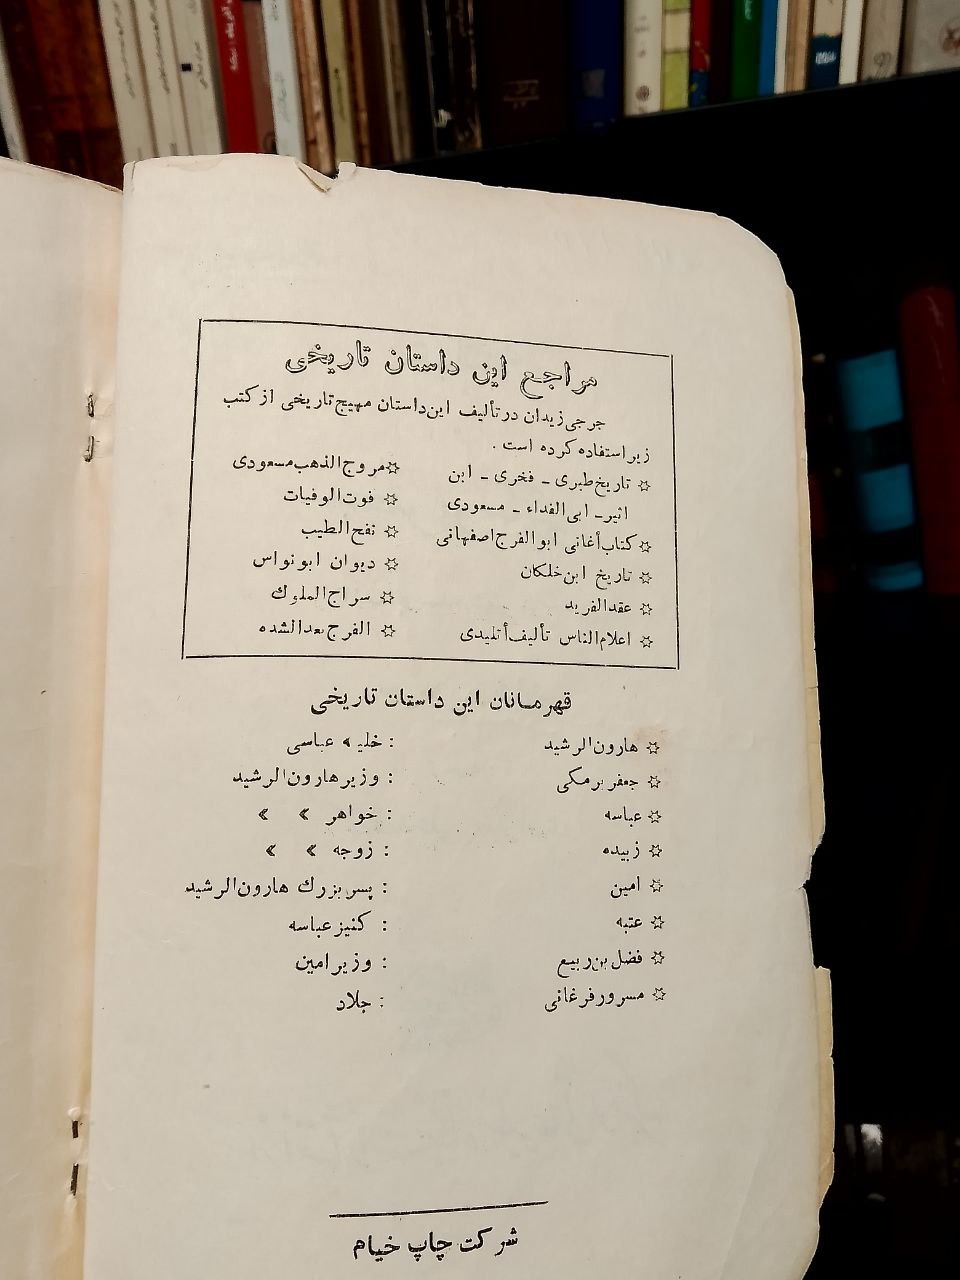 مراجع این داستان تاریخی
جرجی زیدان در تألیف این داستان مهیج تاریخی از کتب
زیر استفاده کرده است .
☼ تاریخ طبری ـ فخری ـ ابن
اثیر ـ ابی الفداء ـ مسعودی
☼ کتاب أغانی ابوالفرج اصفهانی
☼ تاریخ ابن خلکان
☼ عقدالفرید
☼ اعلام الناس تألیف أتلیدی
☼ مروج الذهب مسعودی
☼ فوت الوفیات
☼ نفح الطیب
☼ دیوان ابونواس
☼ سراج الملوك
☼ الفرج بعدالشده
قهرمانان این داستان تاریخی
☼ هارون الرشید : خلیه عباسی
☼ جعفر برمکی : وزیر هارون الرشید
☼ عباسه : خواهر » »
☼ زبیده : زوجه » »
☼ امین : پسر بزرك هارون الرشید
☼ عتبه : کنیز عباسه
☼ فضل بن ربیع : وزیر امین
☼ مسرور فرغانی : جلاد
شرکت چاپ خیام